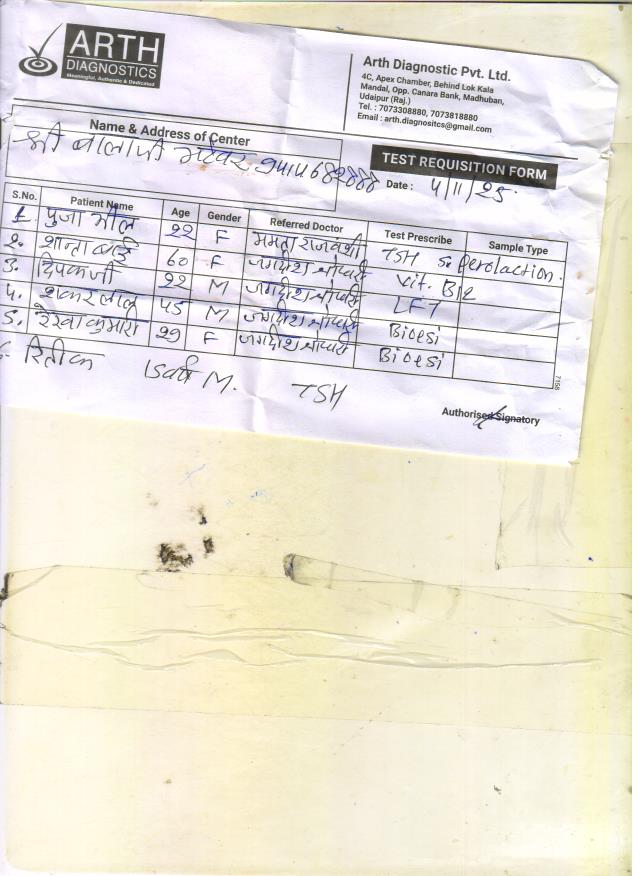 ARTH
DIAGNOSTICS
Meaningful, Authentic & Dedicated
Arth Diagnostic Pvt. Ltd.
4C, Apex Chamber, Behind Lok Kala
Mandal, Opp. Canara Bank, Madhuban,
Udaipur (Raj.)
Tel. : 7073308880, 7073818880
Email : arth.diagnositcs@gmail.com
Name & Address of Center
श्री बालाजी
TEST REQUISITION FORM
Date : 4/11/25
S.No. Patient Name Age Gender Referred Doctor Test Prescribe Sample Type
1. पुजा भील 22 F ममता राजवंशी TSH S. Perolaction.
2. शान्ता बाई 60 F जगदीश चौधरी Vit. B12
3. दिपक जी 22 M जगदीश चौधरी LFT
4. शंकर लाल 45 M जगदीश चौधरी Bioesi
5. रेखा कुमारी 29 F जगदीश चौधरी Bioesi
रितीक M. TSH
7158
Authorised Signatory